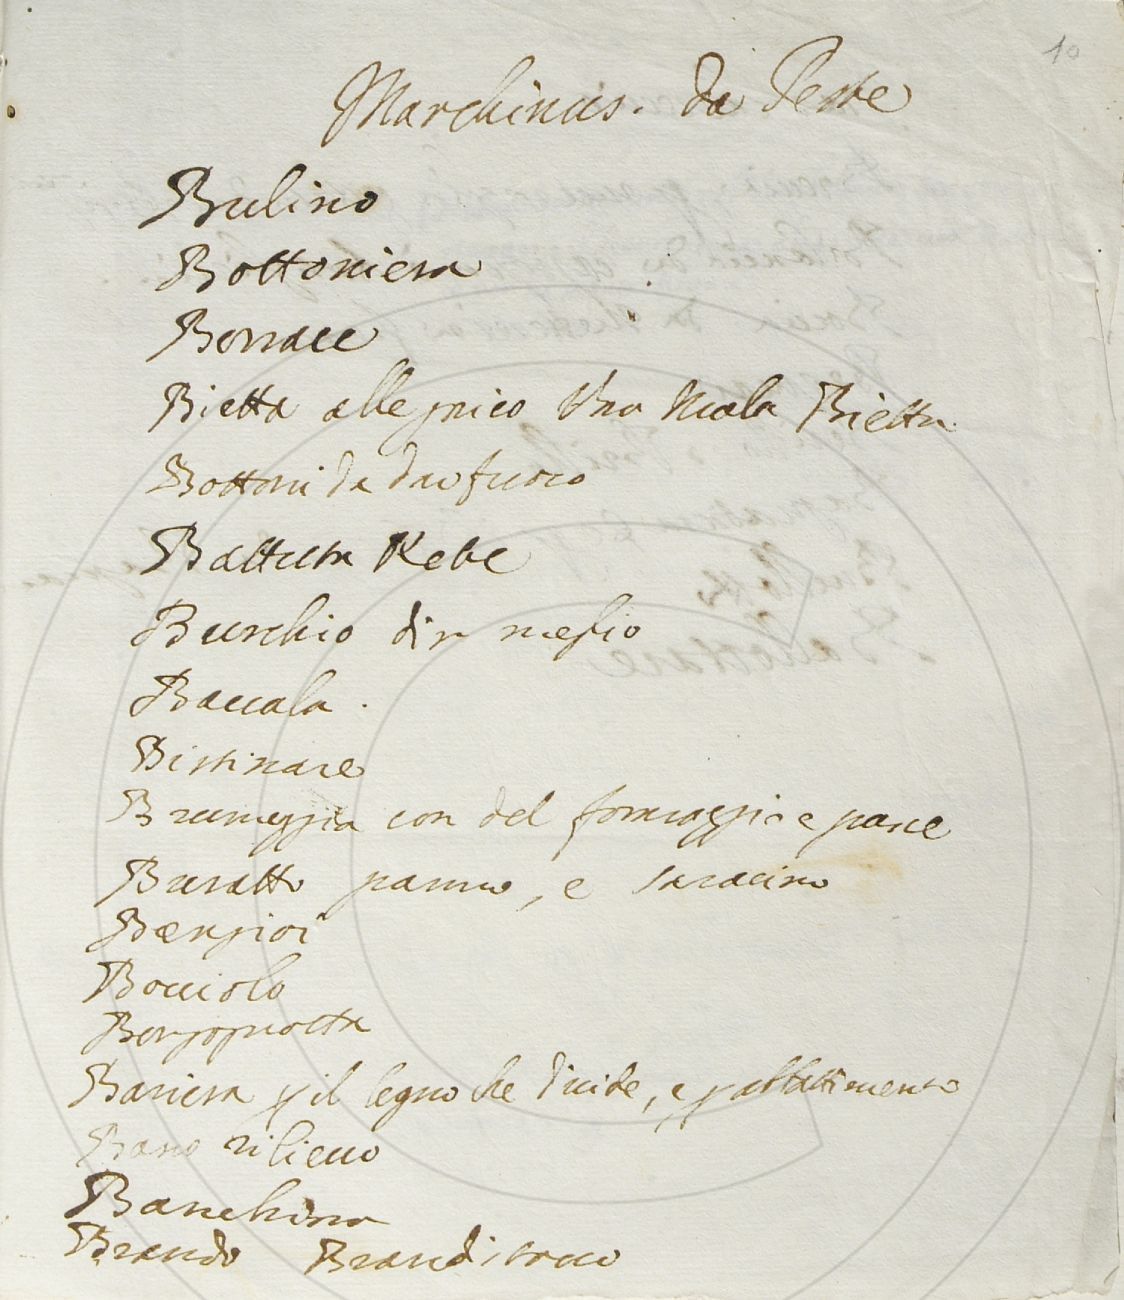 10
Marchinus. da Peste
Bulino
Bottoniera
Borrace
Bietta allegrico Una Mala Bietta
Bottoni da dar fuoco
Battuta Rebe
Burchio
Baccala.
Bistinare
Brumeggia con del formaggio e pane
Buratto panno, e saracino
Bocciolo
Borgognotta
Bariera p il legno che divide, e p abbattimento
Baso rilievo
Banchina
Brando Brandistocco